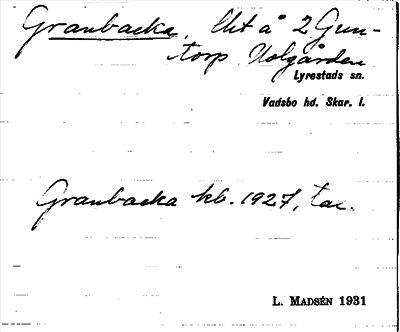 Granbacka, Utå 2 Gun-
torp Uolgården
Lyrestads sn.
Vadsbo hd. Skar. l.
Granbacka kb. 1927, tax.
L. MADSÉN 1931